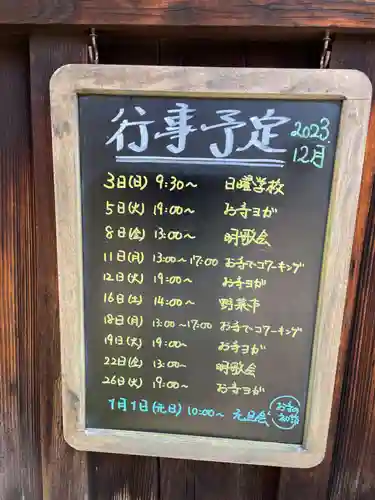 行事予定 2023. 12月
3日(日) 9:30〜 日曜学校
5日(火) 19:00〜 お寺ヨガ
8日(金) 13:00〜 明歌会
11日(月) 13:00〜17:00 お寺でコワーキング
12日(火) 19:00〜 お寺ヨガ
16日(土) 14:00〜 野菜市
18日(月) 13:00〜17:00 お寺でコワーキング
19日(火) 19:00〜 お寺ヨガ
22日(金) 13:00〜 明歌会
26日(火) 19:00〜 お寺ヨガ
1月1日(元日) 10:00〜 元旦会 お寺の初詣